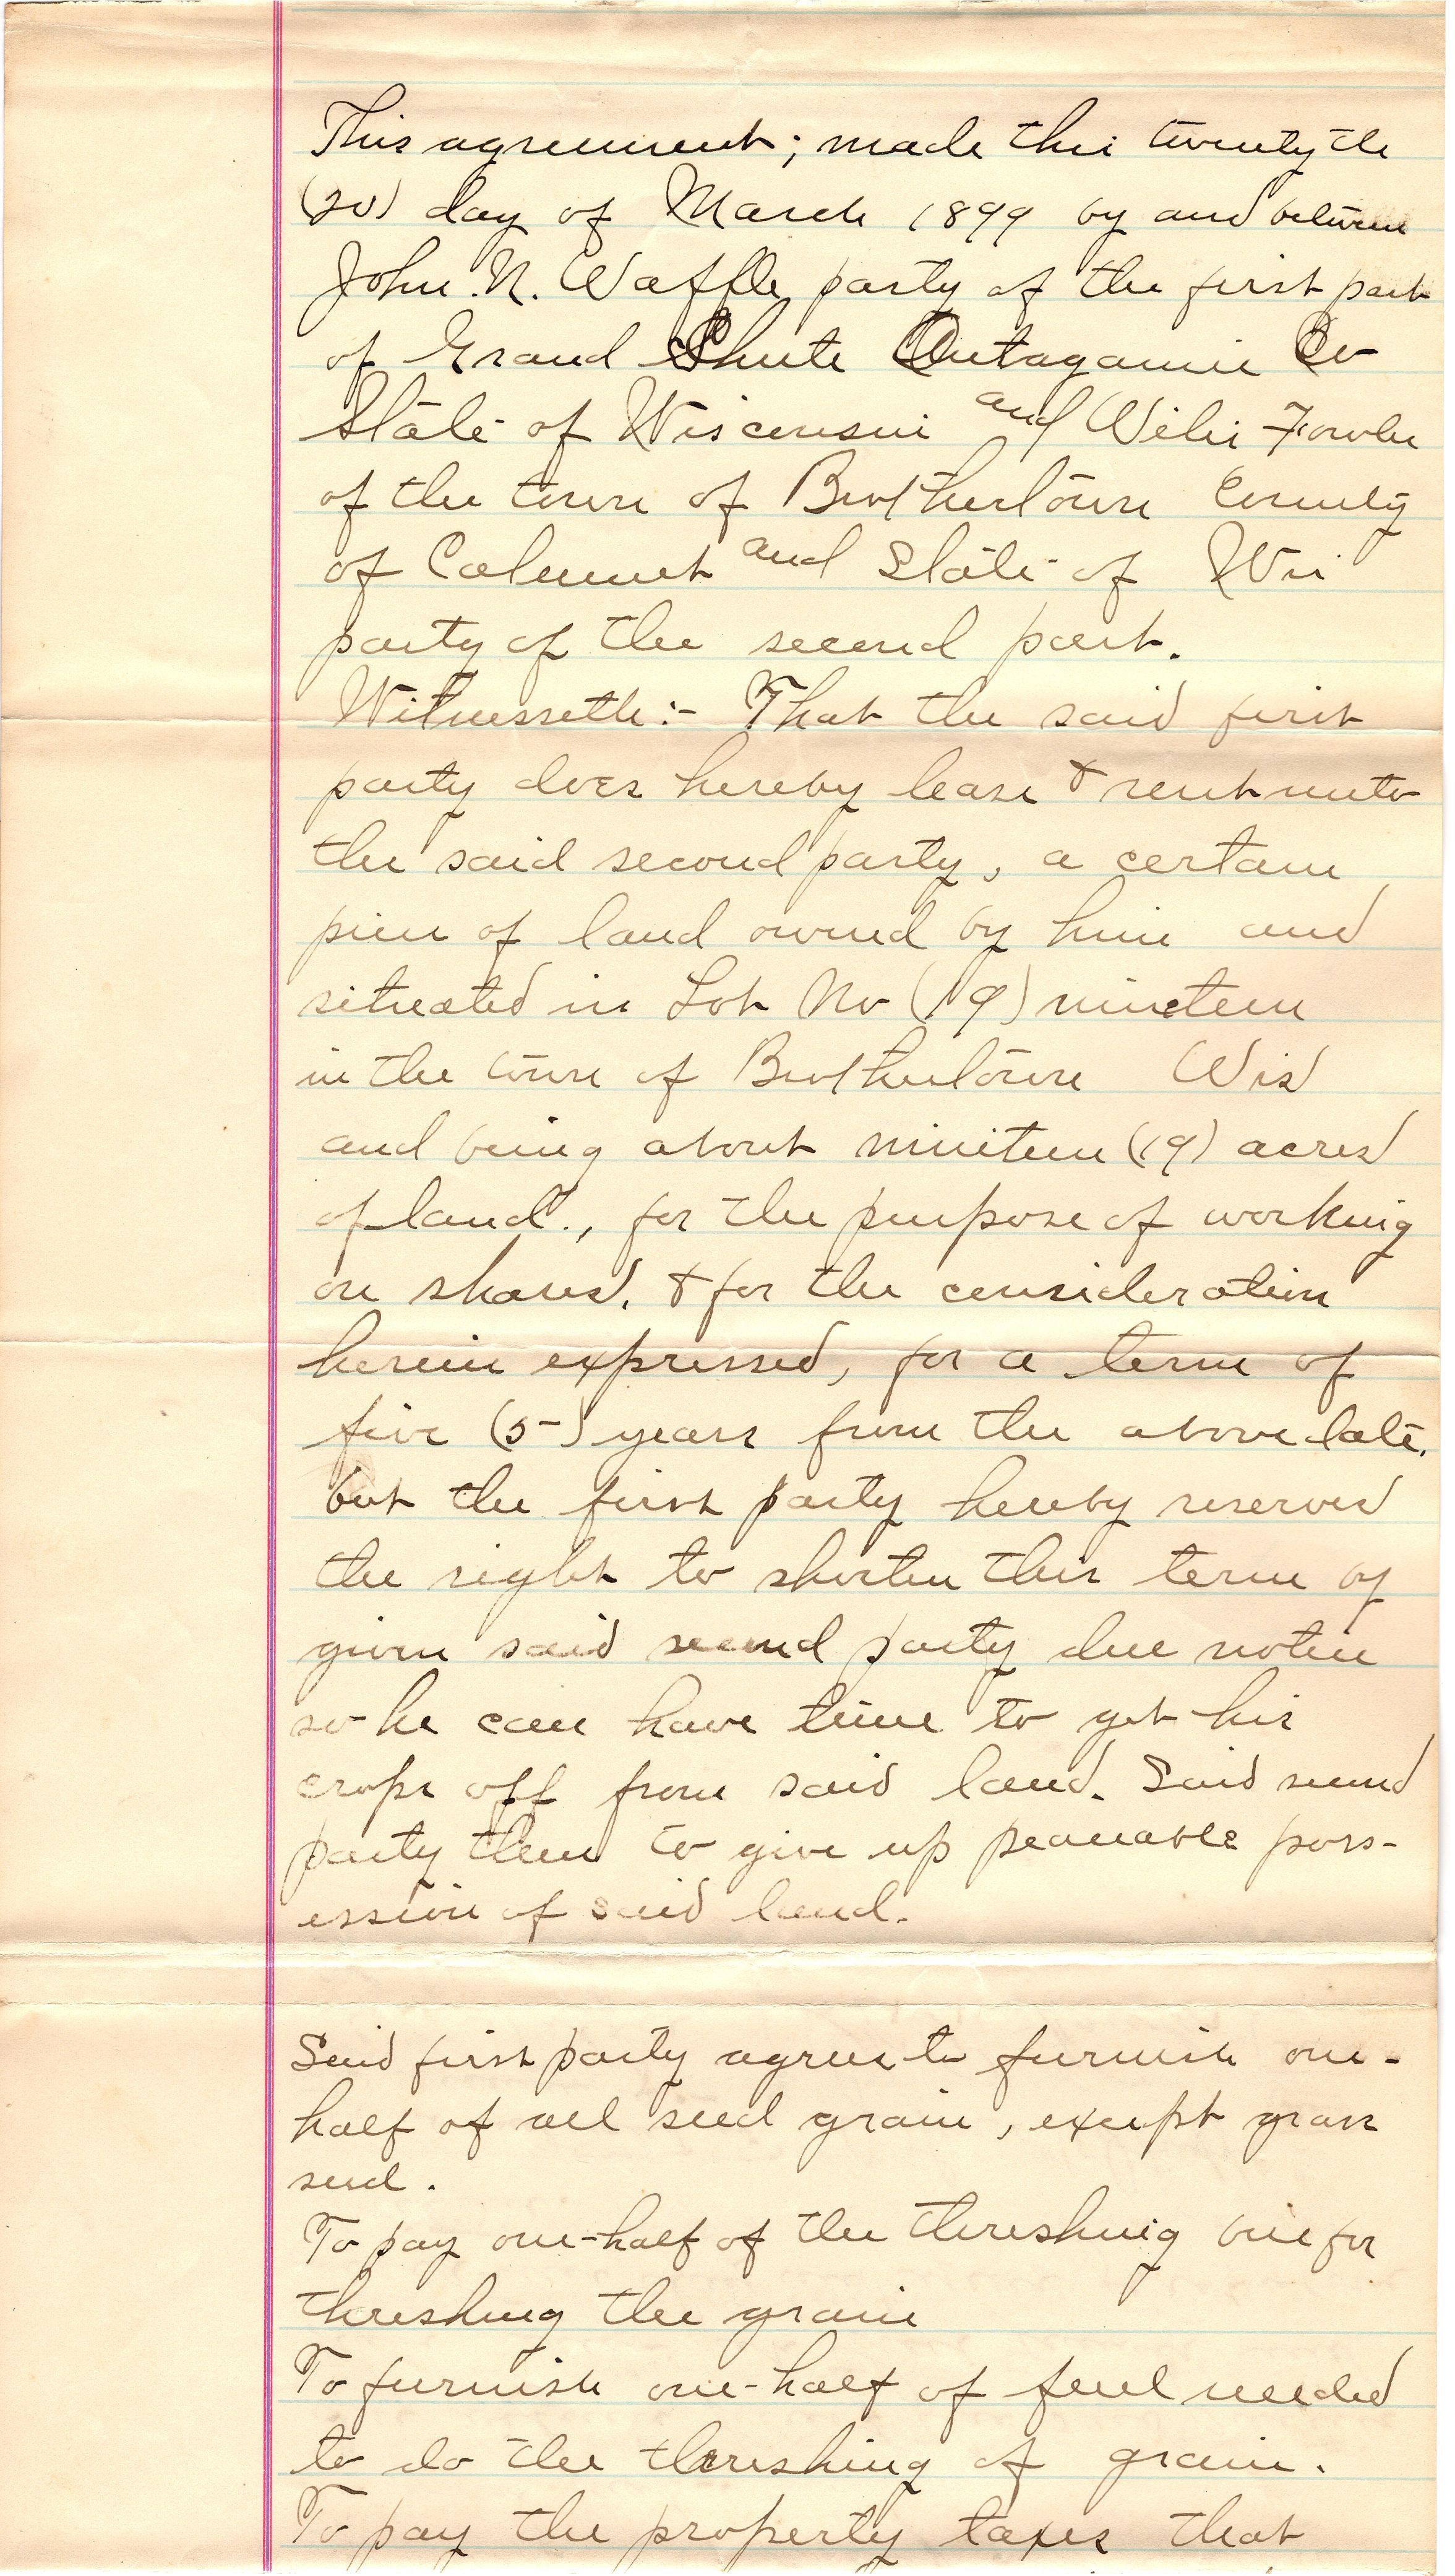 This agreement; made this twentyth
(20) day of March 1899 by and between
John. N. Waffle party of the first part
of Grand Chute Outagamie Co
State of Wisconsin and Fowler
of the town of Brothertown County
of Calumet and State of Wis
party of the second part.
Witnesseth:- That the said first
party does hereby lease & rent unto
the said second party, a certain
piece of land owned by him and
situated in Lot No (19) nineteen
in the town of Brothertown Wis
and being about nineteen (19) acres
of land., for the purpose of working
on shares. & for the consideration
herein expressed, for a term of
five (5) years from the above date.
but the first party hereby reserves
the right to shorten this term by
given said second party due notice
so he can have time to get his
crops off from said land. Said second
party then to give up peaceable poss-
ession of said land.
Said first party agrees to furnish one-
half of all seed grain, except grass
seed.
To pay one-half of the threshing bill for
threshing the grain
To furnish one-half of fuel needed
to do the threshing of grain.
To pay the property taxes that